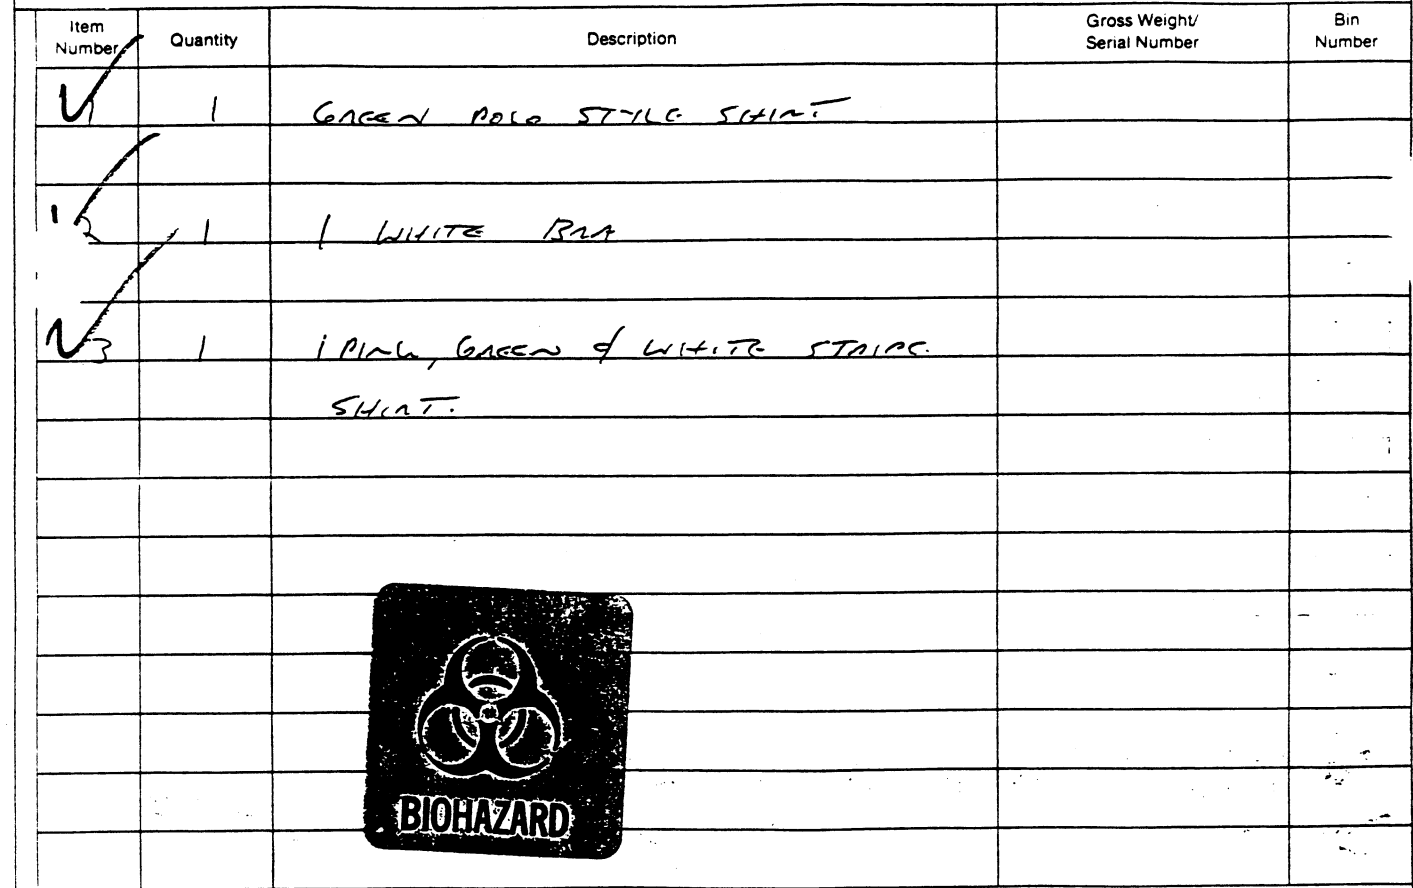 Item Number Quantity Description Gross Weight/ Serial Number Bin Number
1 1 GREEN POLO STYLE SHIRT
2 1 1 WHITE BRA
3 1 1 PINK, GREEN & WHITE STRIPE
SHIRT.
BIOHAZARD